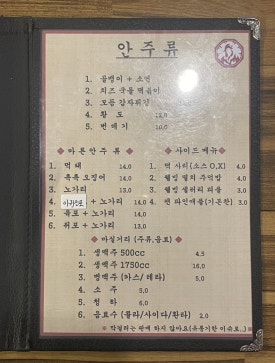 안 주 류
1. 골뱅이 + 소면
2. 치즈 국물 떡볶이
3. 모듬 감자튀김
4. 황 도 12.0
5. 번 데 기 10.0
◆ 마 른 안 주 류 ◆
1. 먹 태 14.0
2. 촉촉 오징어 14.0
3. 노가리 13.0
4. + 노가리 14.0
5. 육포 + 노가리 14.0
6. 쥐포 + 노가리 13.0
◆ 사이드 메뉴 ◆
1. 떡 사리 (소스 O,X) 4.0
2. 웰빙 멸치 주먹밥 4.0
3. 웰빙 샐러리 피클 3.0
4. 캔 파인애플(기본찬) 3.0
◆ 마실거리 (주류,음료) ◆
1. 생맥주 500cc 4.5
2. 생맥주 1750cc 16.0
3. 병맥주 (카스/테라) 5.0
4. 소 주 5.0
5. 청 하 6.0
6. 음료수 (콜라/사이다/환타) 2.0